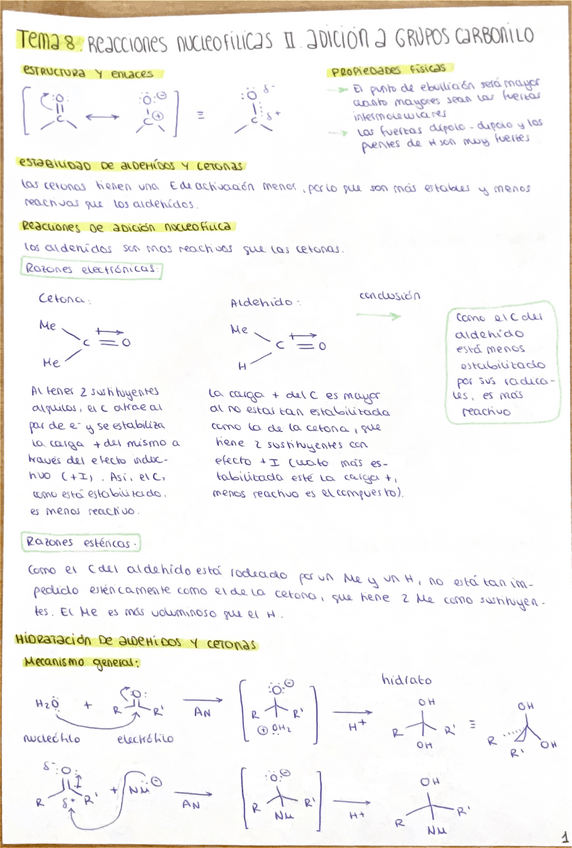 Tema 8: Reacciones nucleofílicas II. adición a grupos carbonilo
Estructura y enlaces
Propiedades físicas
El punto de ebullición será mayor
cuanto mayores sean las fuerzas
intermoleculares
Las fuerzas dipolo-dipolo y los
puentes de H son muy fuertes
Estabilidad de aldehídos y cetonas
Las cetonas tienen una E de activación menor, por lo que son más estables y menos
reactivas que los aldehídos.
Reacciones de adición nucleofílica
Los aldehídos son mas reactivos que las cetonas.
Razones electrónicas:
Cetona:
Me
C = O
Me
Al tener 2 sustituyentes
alquilos, el C atrae al
par de e- y se estabiliza
la carga + del mismo a
través del efecto induc-
tivo (+I). Así, el C,
como está estabilizado,
es menos reactivo.
Aldehído:
Me
C = O
H
La carga + del C es mayor
al no estar tan estabilizada
como la de la cetona, que
tiene 2 sustituyentes con
efecto +I (cuanto más es-
tabilizada esté la carga +,
menos reactivo es el compuesto).
conclusión
Como el C del
aldehído
está menos
estabilizado
por sus radica-
les, es más
reactivo
Razones estéricas:
Como el C del aldehído está rodeado por un Me y un H, no está tan im-
pedido estéricamente como el de la cetona, que tiene 2 Me como sustituyen-
tes. El Me es más voluminoso que el H.
Hidratación de aldehídos y cetonas
Mecanismo general:
hidrato
H2O + R R' AN R R' OH2 H+ R OH R' OH ≡ OH R R' OH
nucleófilo electrófilo
δ- O R δ+ R' + Nu AN O R R' Nu H+ OH R R' Nu
1